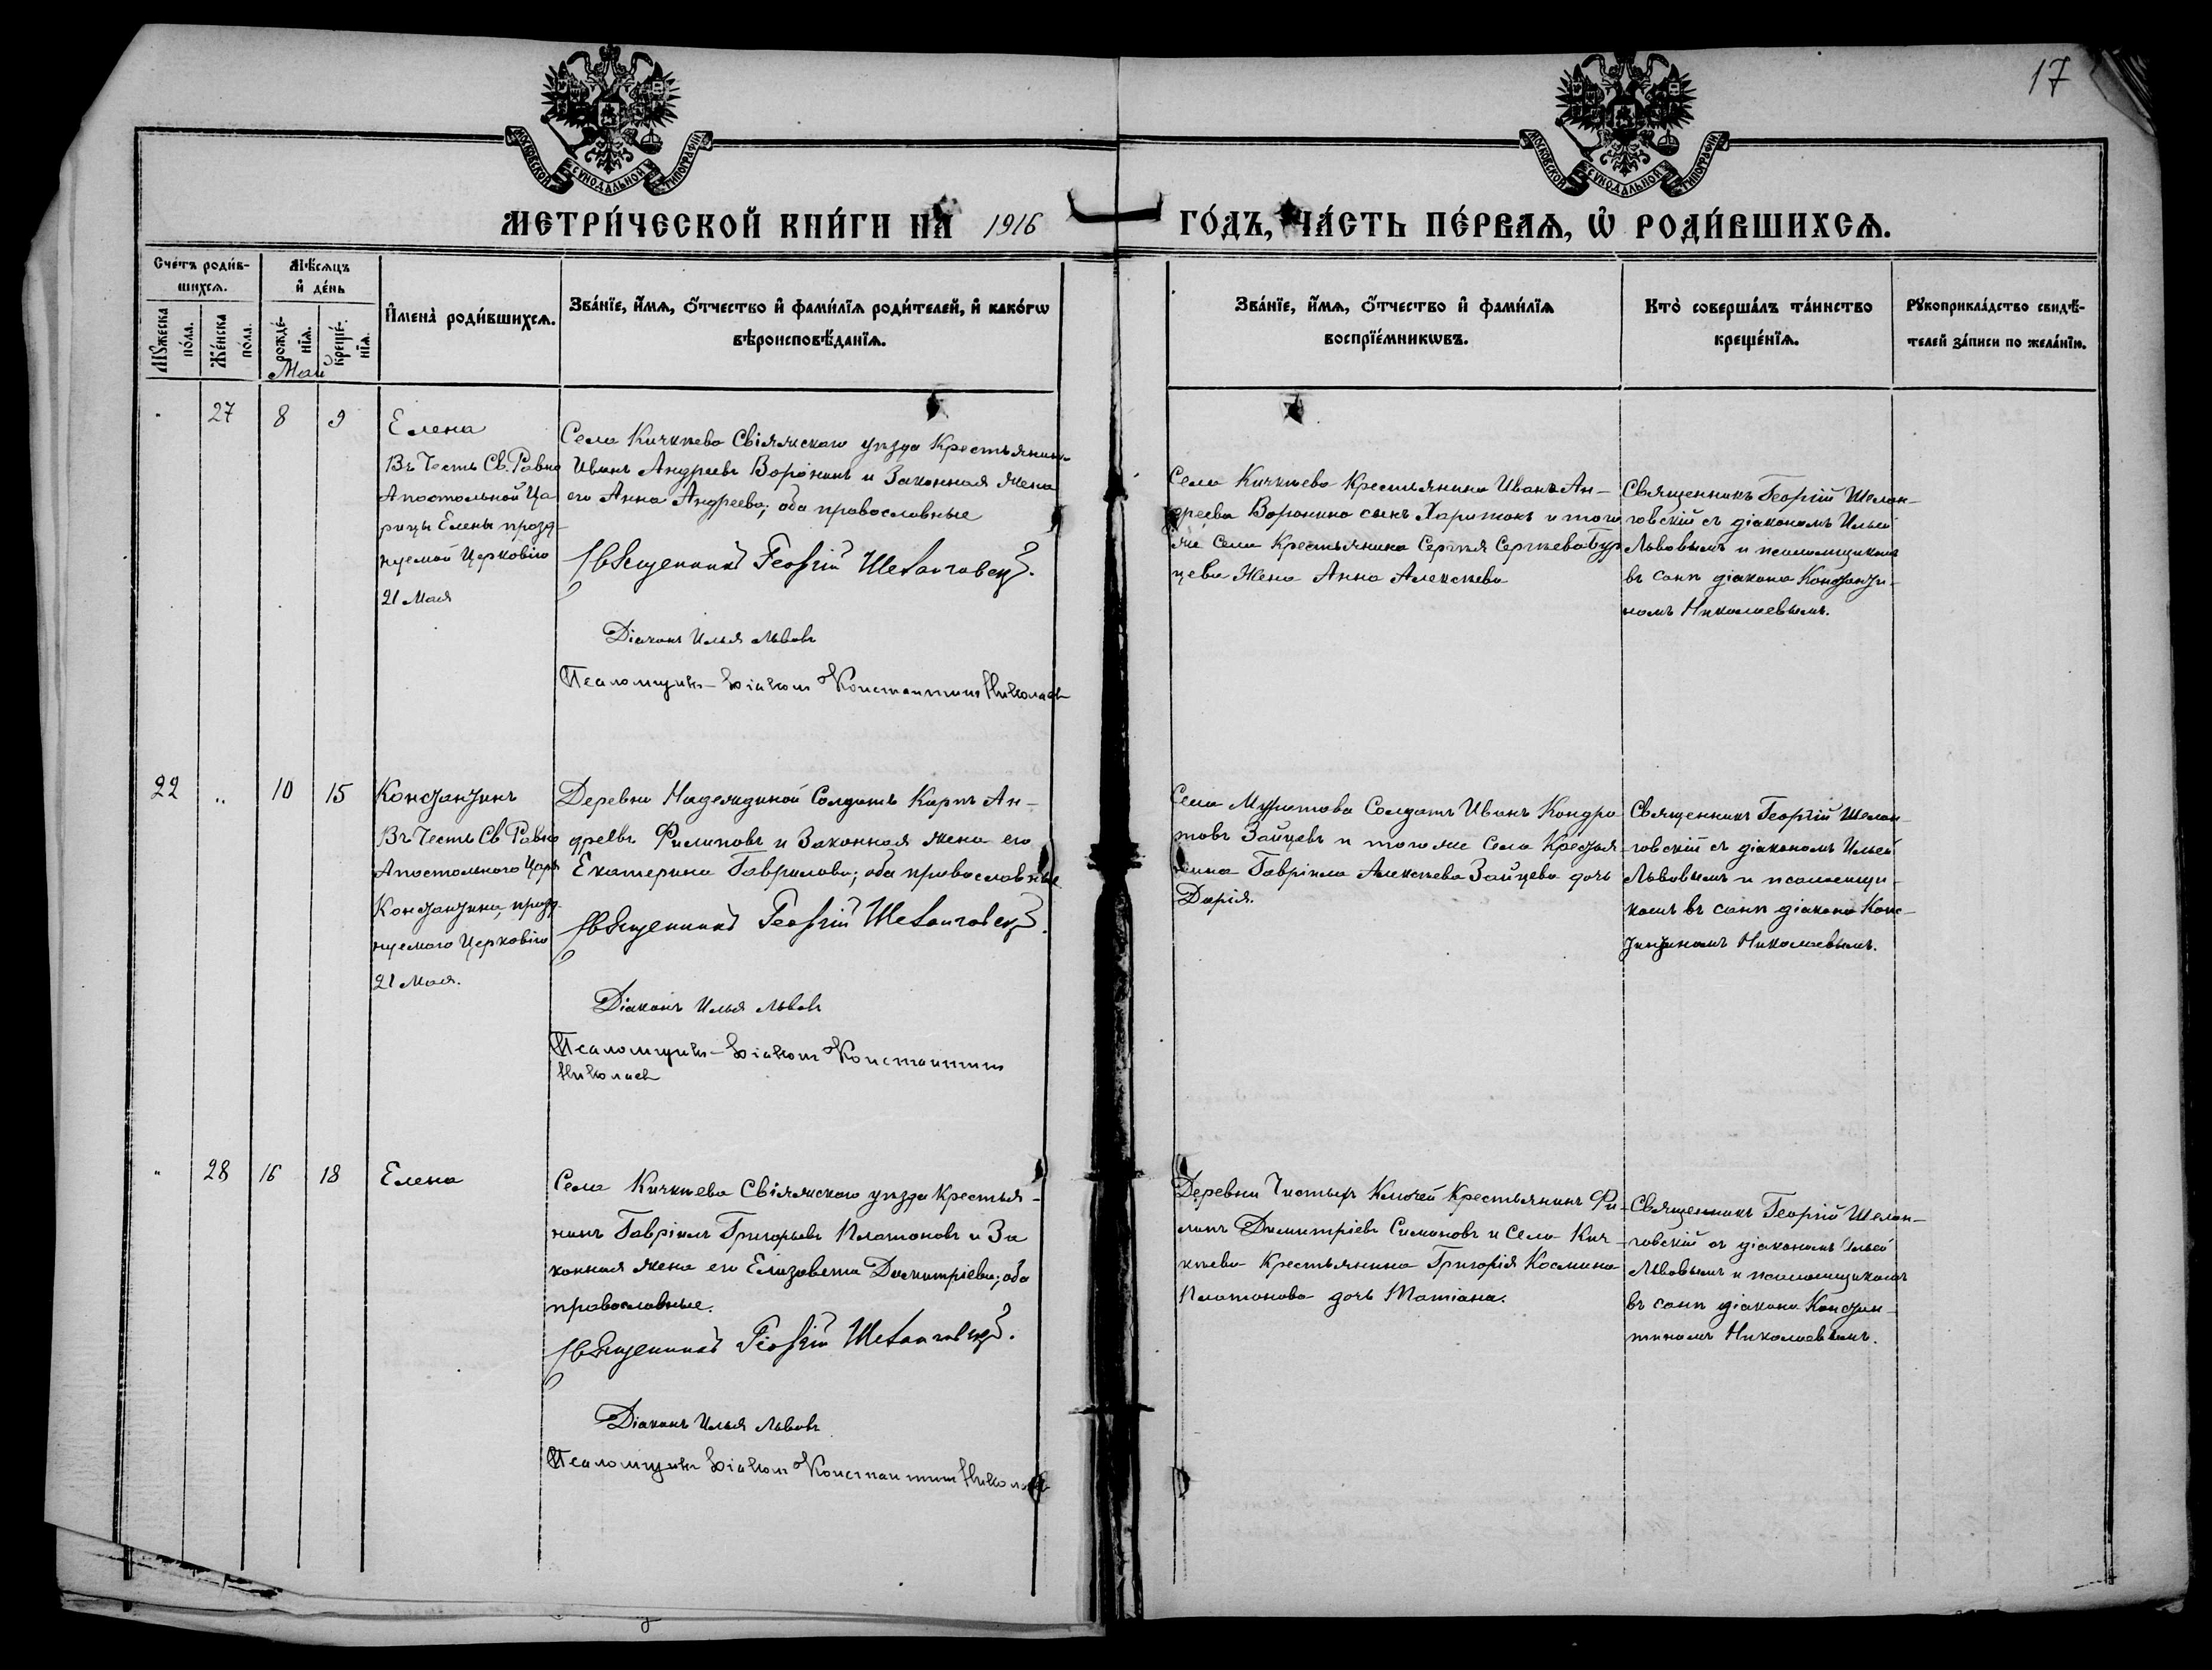 17
МОСКОВСКОЙ СѴНОДАЛЬНОЙ ТИПОГРАФІИ
МОСКОВСКОЙ СѴНОДАЛЬНОЙ ТИПОГРАФІИ
МЕТРИ́ЧЕСКОЙ КНИ́ГИ НА 1916 ГО́ДЪ, ЧА́СТЬ ПЕ́РВАѦ, Ѡ҆ РОДИ́ВШИХСѦ.
Сче́тъ роди́в-
шихсѧ.
Мꙋ́жеска по́ла.
Же́нска по́ла.
Мѣ́сѧцъ
и҆ де́нь
рожде́-
нїѧ.
креще́-
нїѧ.
Май
И҆мена̀ роди́вшихсѧ.
Зва́нїе, и҆́мѧ, ѻ҆́тчество и҆ фами́лїѧ роди́телей, и҆ како́гѡ
вѣроисповѣ́данїѧ.
Зва́нїе, и҆́мѧ, ѻ҆́тчество и҆ фами́лїѧ
воспрїе́мникѡвъ.
Кто̀ соверша́лъ та́инство
креще́нїѧ.
Рꙋкоприкла́дство свидѣ́-
телей за́писи по жела́нїю.
27 8 9
Елена
Въ Честь Св. Равно
Апостольной Ца-
рицы Елены празд-
нуемой Церковію
21 Мая
Села Кичкѣева Свіяжскаго уѣзда Крестьянинъ
Иванъ Андреевъ Воронинъ и Законная жена
его Анна Андреева; оба православные
Священникъ Георгій Шеланговскій.
Діаконъ Илья Львовъ
Псаломщикъ-Діаконъ Константинъ Николаевъ
Села Кичкѣева Крестьянина Ивана Ан-
дреева Воронина сынъ Харитонъ и того
же села Крестьянина Сергѣя Сергѣева Бур
цева Жена Анна Алексѣева
Священникъ Георгій Шелан-
говскій съ діакономъ Ильей
Львовымъ и псаломщикомъ
въ санѣ діакона Константи-
номъ Николаевымъ.
22 „ 10 15
Константинъ
Въ Честь Св. Равно
Апостольного Царя
Константина, празд-
нуемаго Церковію
21 Мая.
Деревни Надеждиной Солдатъ Карпъ Ан-
дреевъ Филиповъ и Законная жена его
Екатерина Гаврилова; оба православные
Священникъ Георгій Шеланговскій.
Діаконъ Илья Львовъ
Псаломщикъ-Діаконъ Константинъ
Николаевъ
Села Муратова Солдатъ Иванъ Кондра
товъ Зайцевъ и того же Села Крестья
нина Гавріила Алексѣева Зайцева дочь
Дарія.
Священникъ Георгій Шелан-
говскій съ діакономъ Ильей
Львовымъ и псаломщи-
комъ въ санѣ діакона Конс-
тантиномъ Николаевымъ.
„ 28 16 18
Елена
Села Кичкѣева Свіяжскаго уѣзда Крестья-
нинъ Гавріилъ Григорьевъ Платоновъ и За
конная жена его Елизавета Димитріева; оба
православные.
Священникъ Георгій Шеланговскій.
Діаконъ Илья Львовъ
Псаломщикъ Діаконъ Константинъ Николаевъ
Деревни Чистыхъ Ключей Крестьянинъ Фи-
липъ Димитріевъ Симановъ и Села Кич-
кѣева Крестьянина Григорія Космина
Платонова дочь Татіана.
Священникъ Георгій Шелан-
говскій съ діакономъ Ильей
Львовымъ и псаломщикомъ
въ санѣ діакона Констан-
тиномъ Николаевымъ.